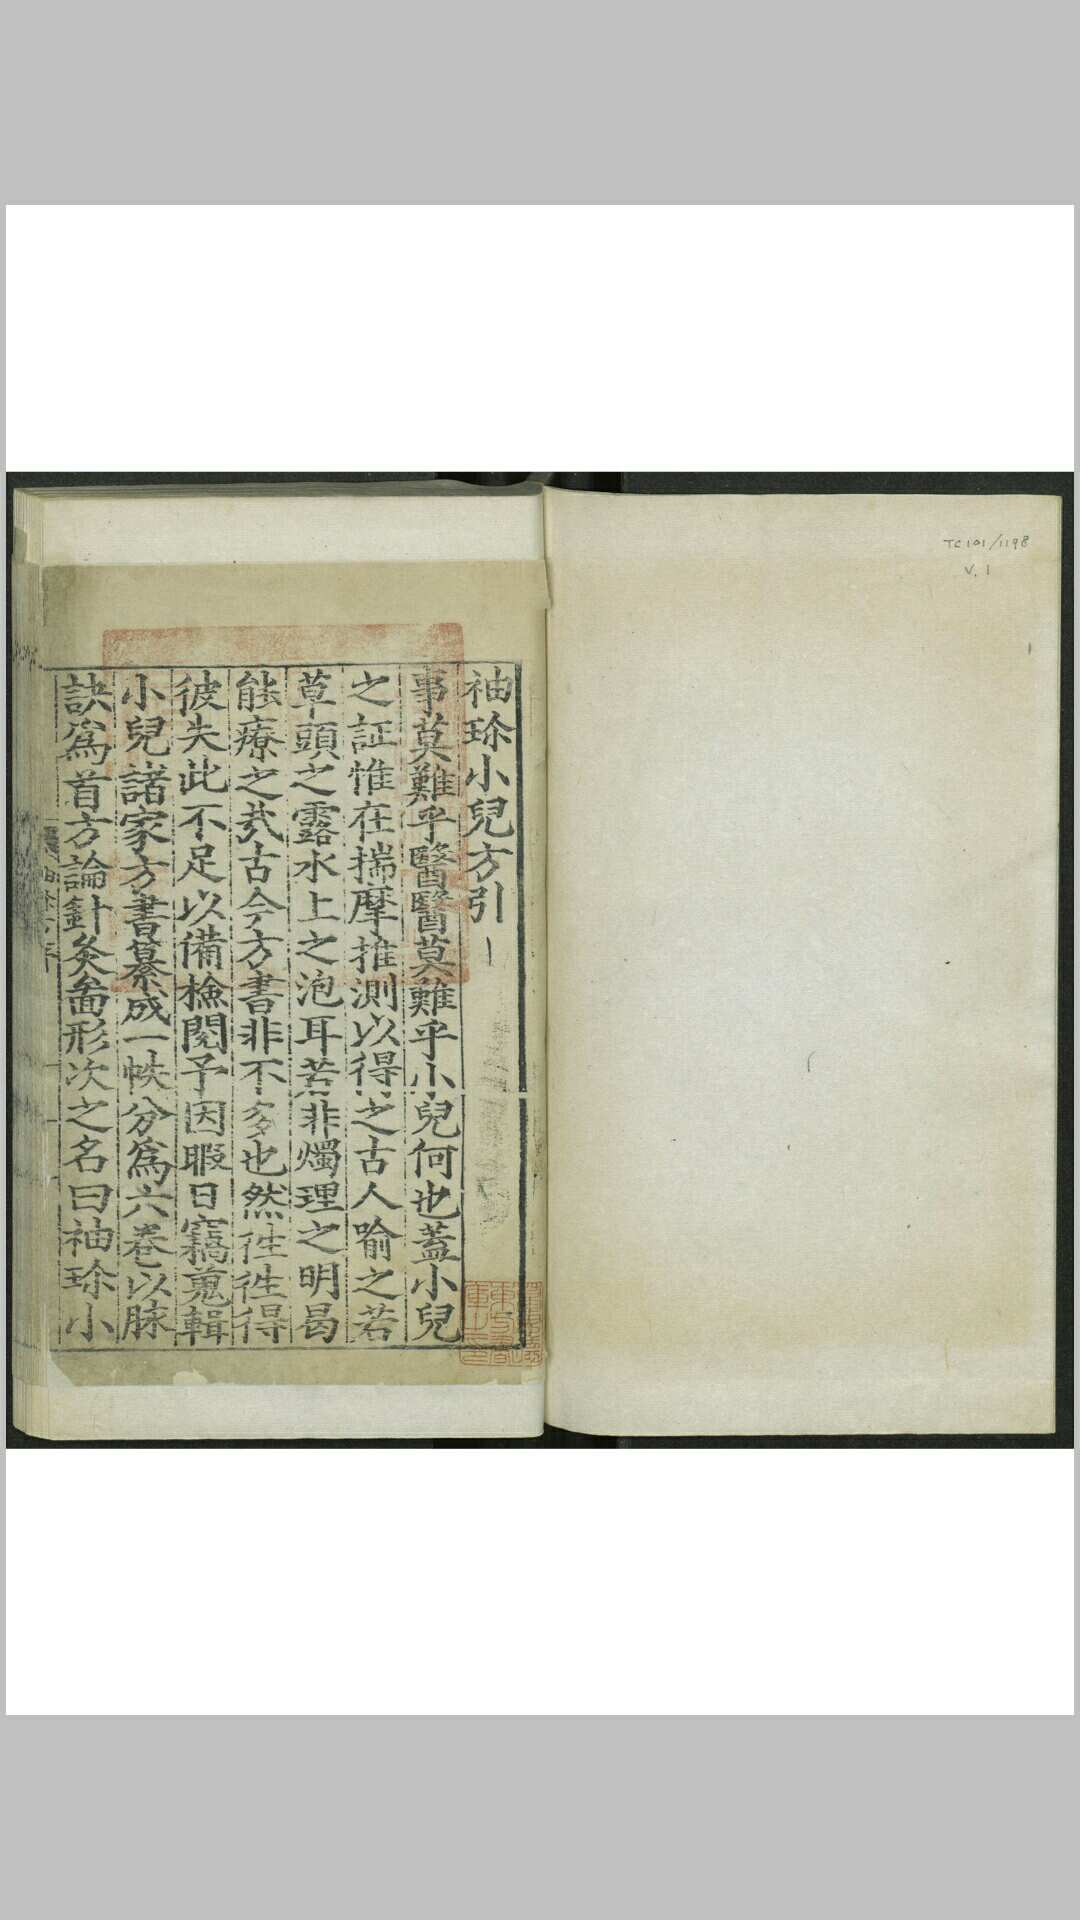 TC101/1198
V.1
1
袖珎小兒方引
事莫難乎醫醫莫難乎小兒何也蓋小兒
之証惟在揣摩推測以得之古人喻之若
草頭之露水上之泡耳若非燭理之明曷
能療之㢤古今方書非不多也然徃徃得
彼失此不足以備檢閱予因暇日竊蒐輯
小兒諸家方書纂成一帙分爲六卷以脉
訣爲首方論針灸啚形次之名曰袖珎小